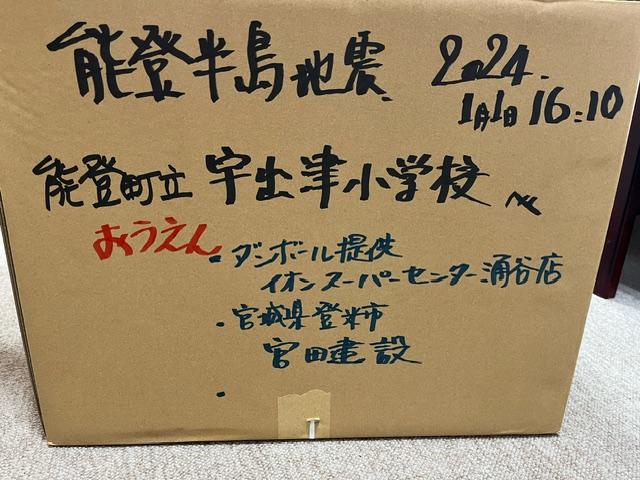 能登半島地震 2024.
1月1日 16:10
能登町立 宇出津小学校 へ
おうえん
・ダンボール提供
イオンスーパーセンター涌谷店
・宮城県登米市
宮田建設
・